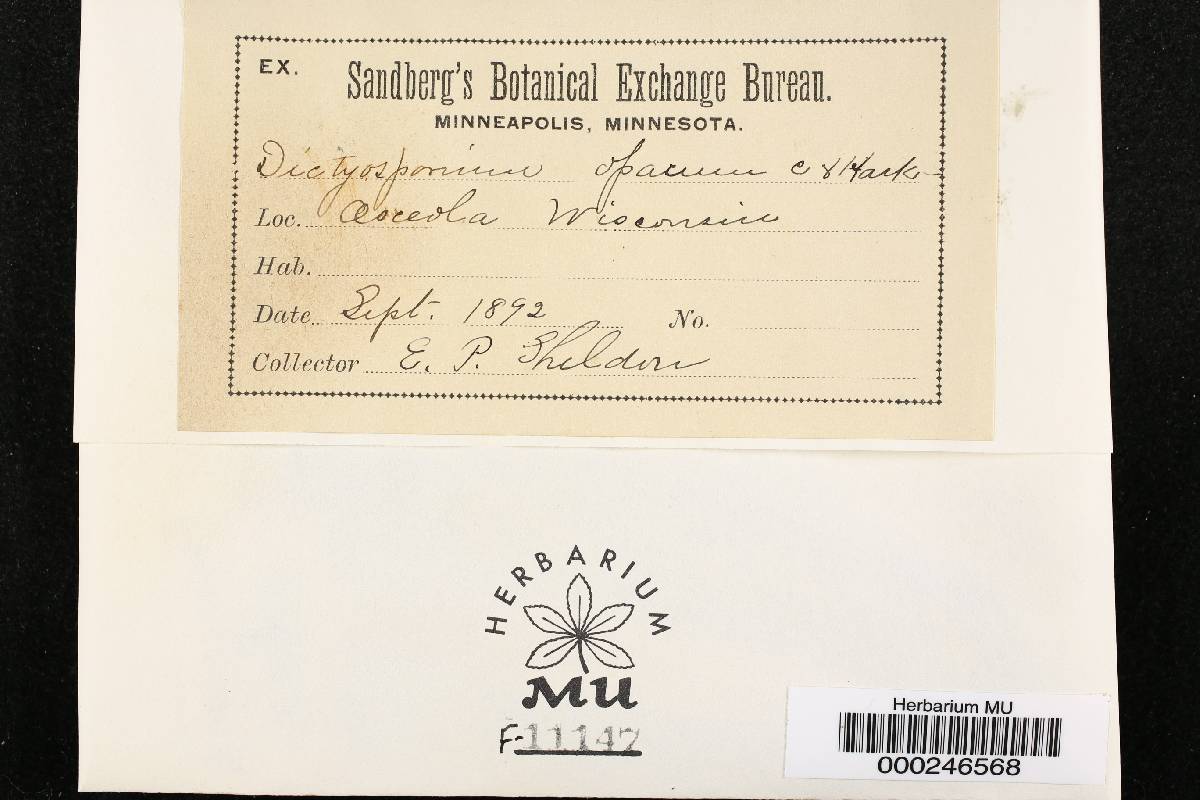 EX. Sandberg's Botanical Exchange Bureau.
MINNEAPOLIS, MINNESOTA.
Dictyosporium opacum C & Hark
Loc. Osceola Wisconsin
Hab.
Date Sept. 1892 No.
Collector E. P. Sheldon
HERBARIUM
MU
F-11147
Herbarium MU
000246568